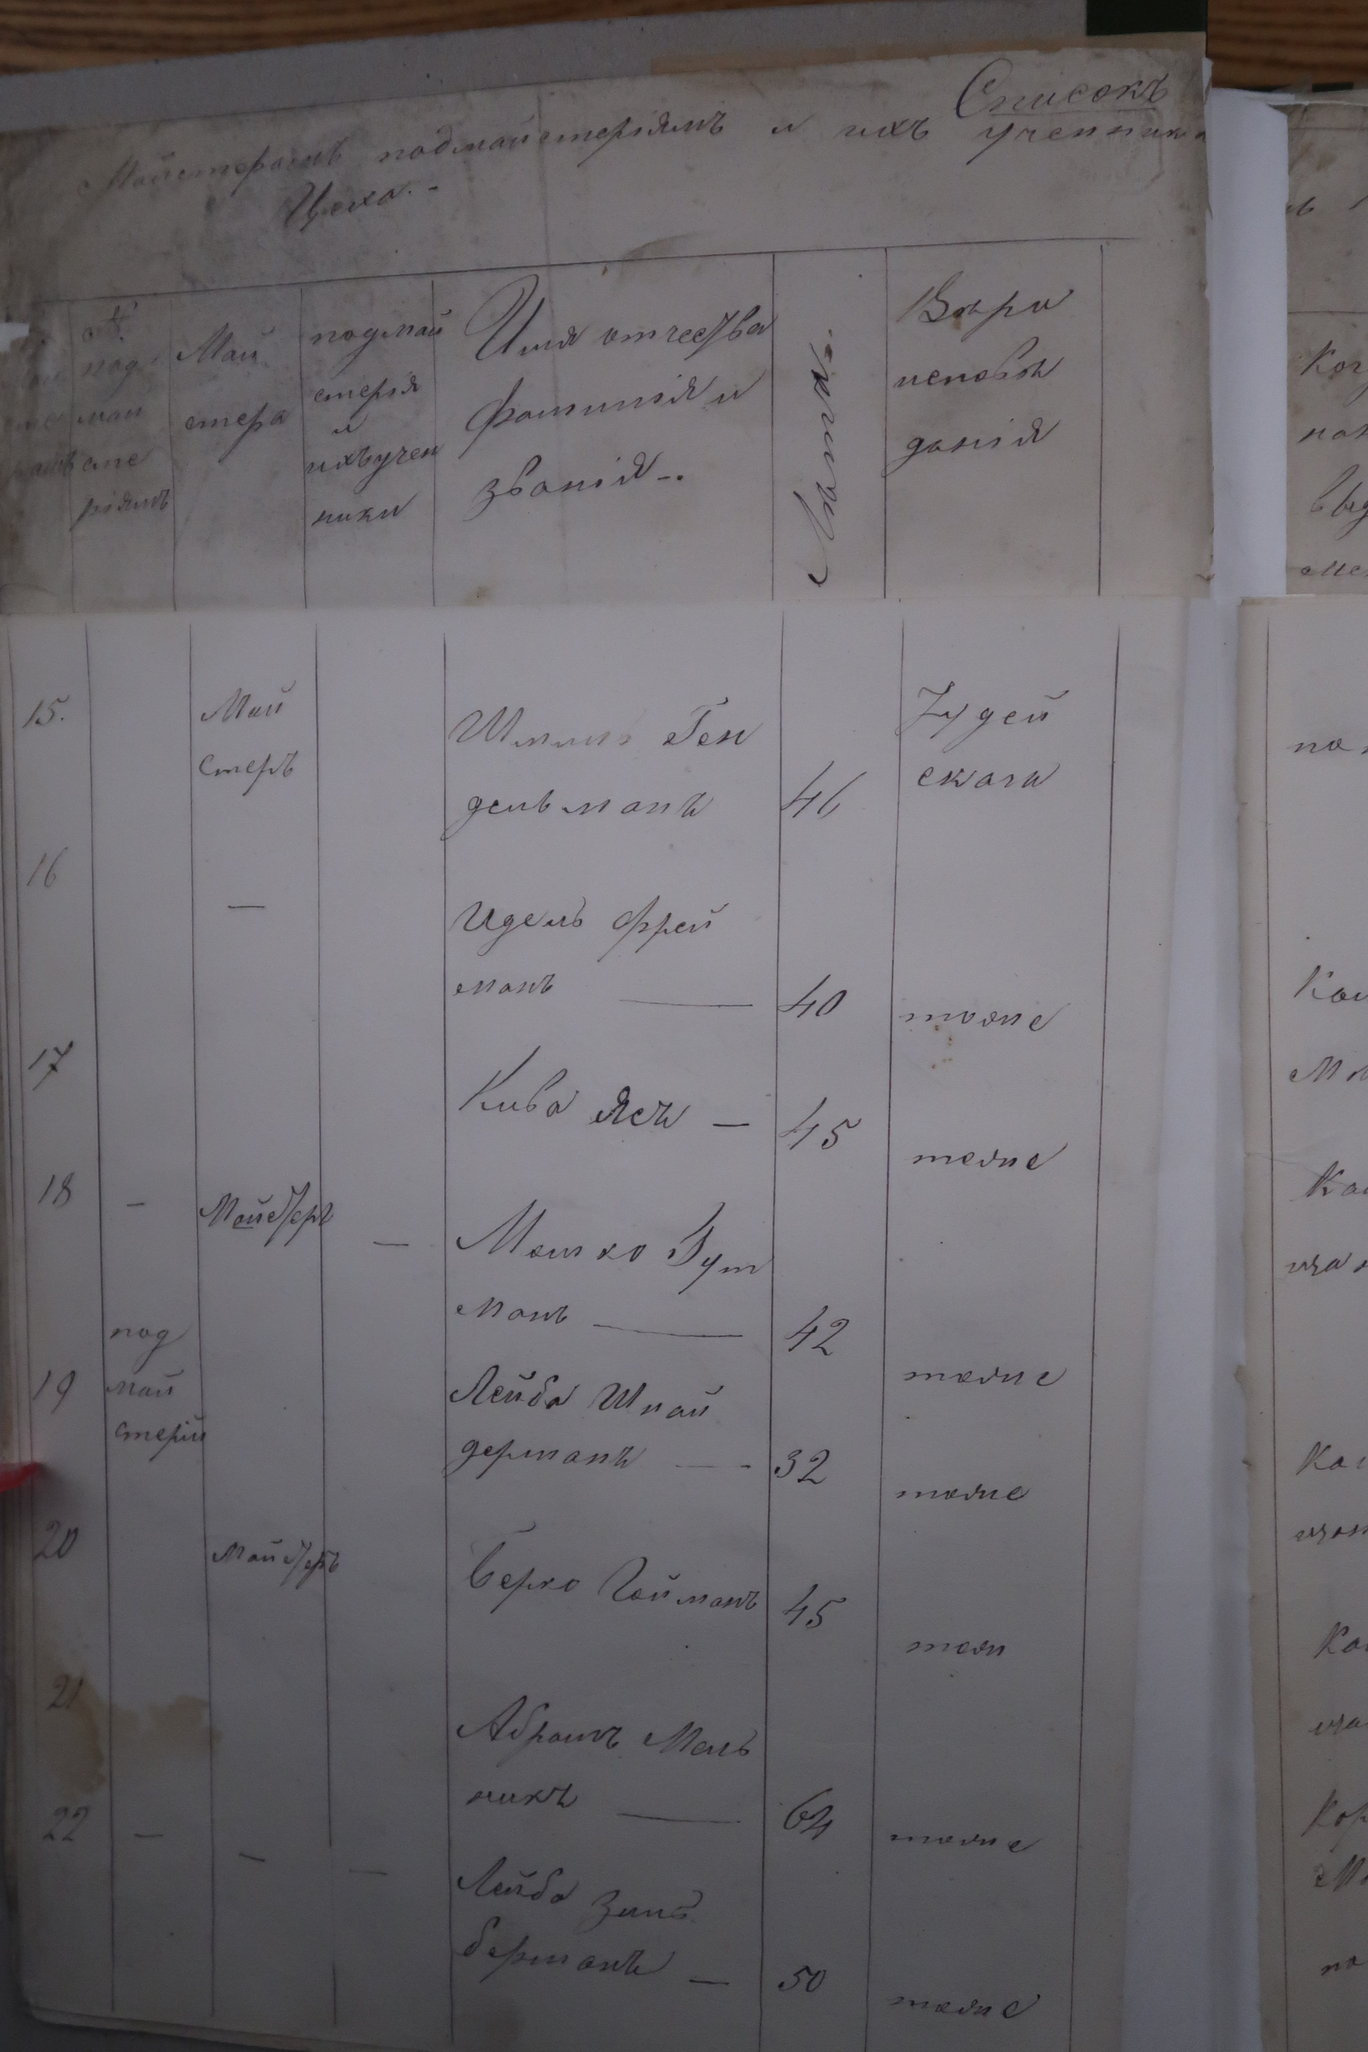 Списокъ
Майстерамъ подмайстеріямъ и ихъ ученика
Цеха.-
№
под
май
сте
ріямъ
Май
стера
подмай
стерія
и
ихъ учен
ники
Имя отчества
фамилія и
званія -.
Лета
Вѣра
исповѣ
данія
15.
Май
стеръ
Шмилъ Ген
дельманъ
46
Іудей
скага
16
—
Идель Фрей
манъ —
40
тоже
17
Кива Ясъ —
45
тоже
18
—
Майстеръ
—
Мошко Гут
манъ —
42
тоже
19
под
май
стерій
Лейба Шнай
дерманъ — -
32
тоже
20
Майстеръ
Берко Гойманъ
45
тоже
21
Абрамъ Мель
никъ —
64
тоже
22
—
—
—
Лейба Зиль
берманъ —
50
тоже